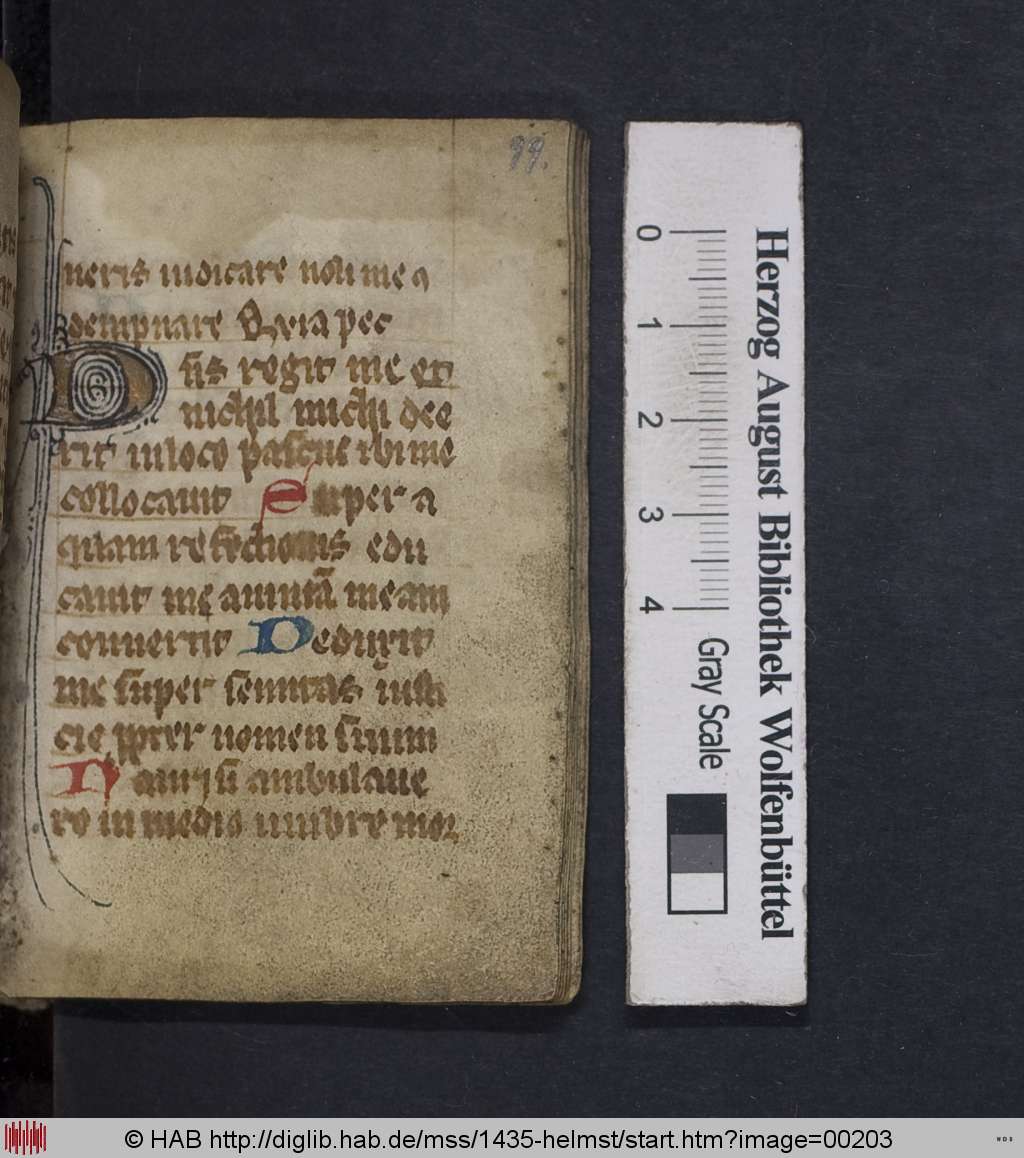 99.
neris iudicare noli me ꝯ
dempnare Q̄uia pec
Dn̄s regit me et
nichil michi dee
rit in loco pascue ibi me
collocauit Super a
quam refectionis edu
cauit me animā meam
conuertit Deduxit
me super semitas iusti
cie ꝓpter nomen suum
Nam ⁊ si ambulaue
ro in medio umbre mor
0
1
2
3
4
Gray Scale
Herzog August Bibliothek Wolfenbüttel
© HAB http://diglib.hab.de/mss/1435-helmst/start.htm?image=00203